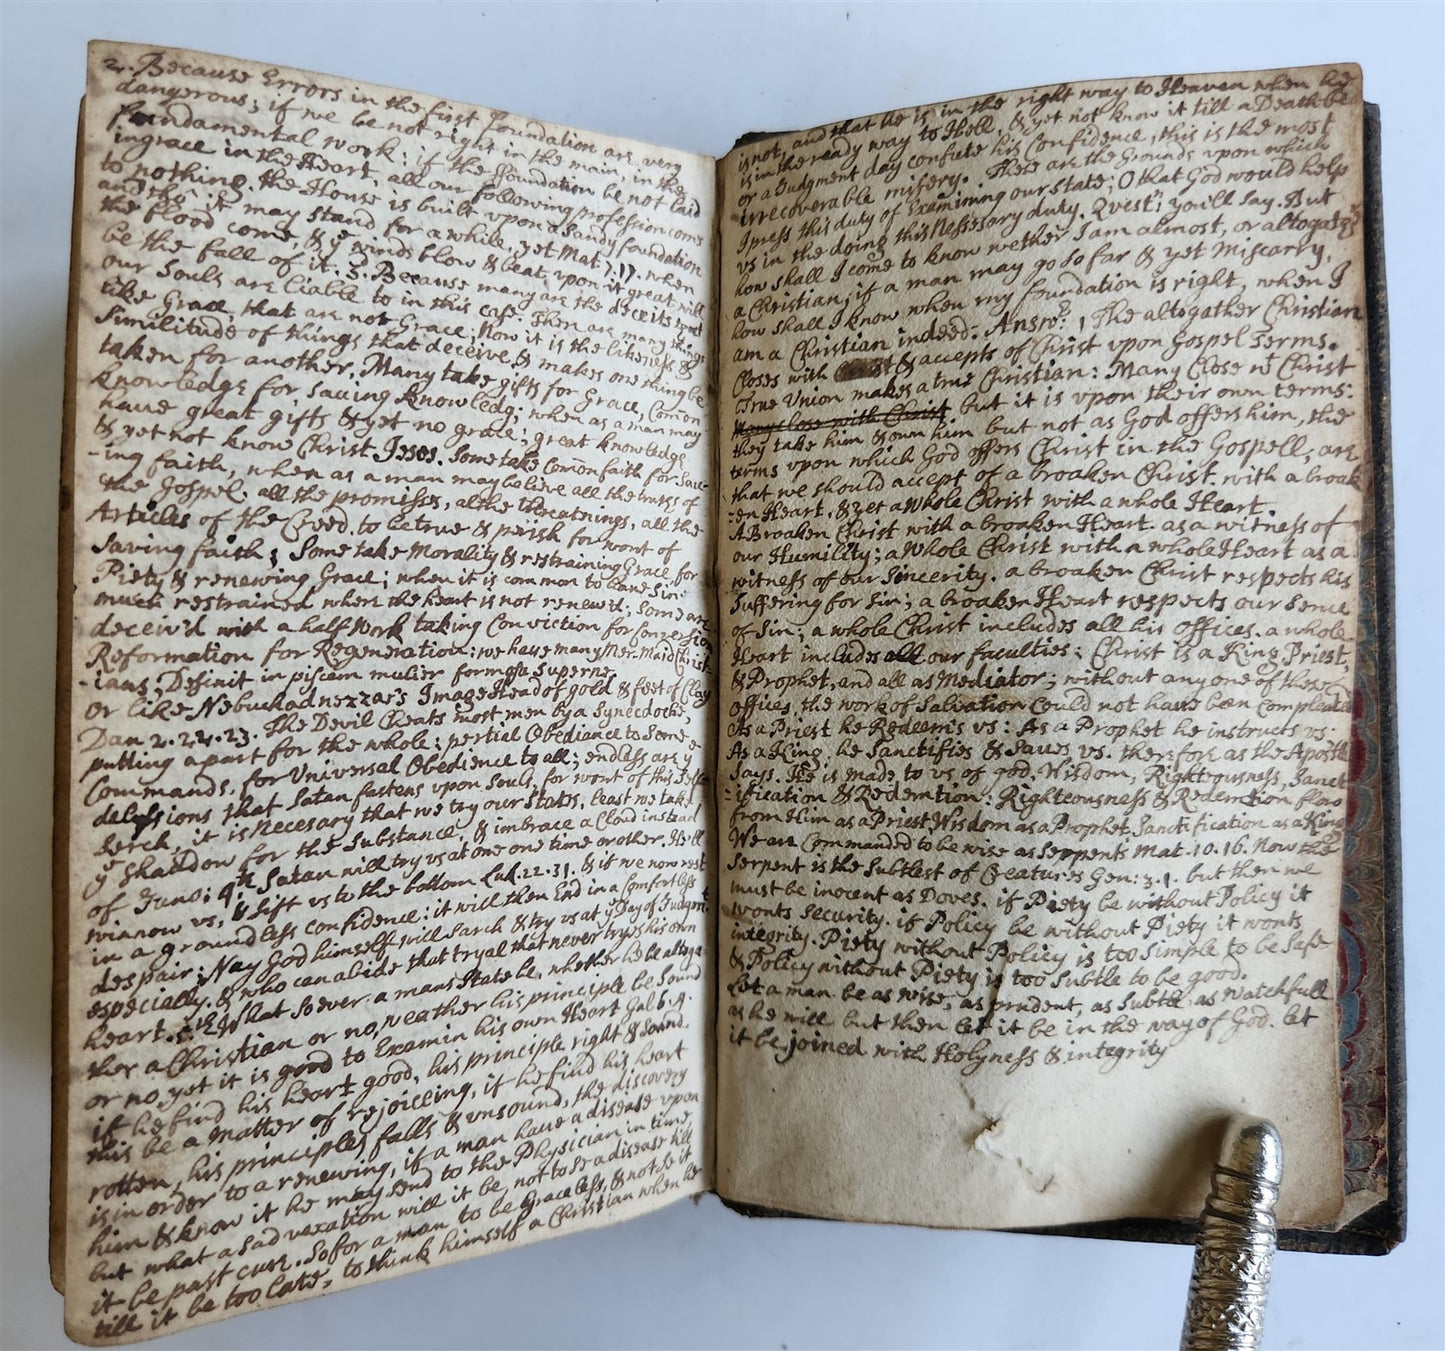 2. Because Errors in the first foundation are very
dangerous; if we be not right in the main, in the
fundamental work: if the foundation be not laid
ingrace in the Heart, all our following profession coms
to nothing. the House is built upon a Sandy foundation
and tho' it may stand for a while, yet Mat 7.17. when
the flood come, & ye winds blow & beat, upon it great will
be the fall of it. 3. Because many are the deceits that
our Souls are liable to in this case. There are many things
like Grace, that are not Grace; Now it is the likeness &
Similitude of things that deceive, & makes one thing be
taken for another. Many take gifts for Grace, Common
knowledge for saving knowledg; when as a man may
have great gifts & yet no grace; great knowledge
& yet not know Christ Jesus. Some take Common faith for Save-
-ing faith, when as a man may believe all the truths of
the Gospel. all the promisses, al the threatnings, all the
Articles of the Creed. to be true & perish for wont of
Saving faith; Some take Morality & restraining Grace for
Piety & renewing Grace; when it is common to have Sin
much restrained when the heart is not renew'd; Some are
deceiv'd with a half Work taking Conviction for Conversion
Reformation for Regeneration: we have many Mer-Maid Christ-
-ians; Desinit in piscem mulier formosa Superne.
or like Nebuchadnezzar's Image Head of gold & feet of Clay
Dan 2.22.23. The Devil Cheats most men by a Synecdoche,
putting a part for the whole; pertial Obediance to Some
Commands, for Universal Obedience to all; endless are ye
delusions that Satan fastens upon Souls, for wont of this Self
serch, it is Necesary that we try our States, least we take
ye shaddow for the Substance, & imbrace a Cloud instead
of Juno; 4th Satan will try us at one one time or other. He'll
winnow us, & sift us to the bottom Luk. 22.31. & if we now rest
in a groundless confidence: it will then End in a Comfortless
despair: Nay God himself will Sarch & try us at ye Day of Judgmt.
especially. & who can abide that tryal that never trys his own
heart. 5th What so ever a mans State be, whether he be altoga-
ther a Christian or no, weather his principle be Sound
or no, yet it is good to Examin his own Heart Gal 6.4.
if he find his heart good, his principle right & sound.
this be a matter of rejoiceing, if he find his heart
rotten, his principles falls & unsound, the discovery
is in order to a renewing, if a man have a disease upon
him & know it he may send to the Physician in time
but what a Sad vexation will it be, not to se a disease till
it be past cure. So for a man to be Graceless, & not se it
till it be too late, to think himself a Christian when he
is not, and that he is in the right way to Heaven when he
is in the ready way to Hell, & yet not know it till a Death be
or a Judgment day confute his Confidence, this is the most
irrecoverable misery. These are the Grounds upon which
I press this duty of Examining our state; O that God would help
us in the doing this Nessesary duty. Quest: you'll say. But
how shall I come to know wether I am almost, or altogather
a Christian; if a man may go so far & yet Miscarry,
how shall I know when my foundation is right, when I
am a Christian indeed. Answr: 1, The altogather Christian
Closes with & accepts of Christ upon Gospel Terms.
True Union makes a true Christian: Many Close wt Christ
Many close with Christ but it is upon their own terms:
they take him & own him but not as God offers him, the
terms upon which God offers Christ in the Gospell, are
that we should accept of a broaken Christ. with a broak
-en Heart, & yet a Whole Christ with a whole Heart.
A Broaken Christ with a broaken Heart. as a witness of
our Humility; a Whole Christ with a whole Heart as a
witness of our Sincerity. a broaken Christ respects his
Suffering for Sin; a broaken Heart respects our Sence
of Sin; a whole Christ includes all his offices. a whole
Heart includes all our faculties: Christ is a King, Priest,
& Prophet, and all as Mediator; without any one of these
offices, the work of Salvation Could not have been compleated
As a Priest he Redeems us: As a Prophet he instructs us:
As a King, he Sanctifies & Saves us. therfore as the Apostle
Says. He is made to us of god. Wisdom, Righteousness, Sanct
-ification & Redemtion: Righteousness & Redemtion flow
from Him as a Priest Wisdom as a Prophet, Sanctification as a King
We are Commanded to be wise as Serpents Mat. 10.16. Now the
Serpent is the Subtlest of Creatures Gen: 3.1. but then we
must be inocent as Doves. if Piety be without Policy it
wonts security. if Policy be without Piety it wonts
integrity. Piety without Policy is too simple to be Safe
& Policy without Piety is too Subtle to be good.
Let a man be as wise, as prudent, as Subtle as watchfull
as he will but then let it be in the way of God. let
it be joined with Holyness & integrity